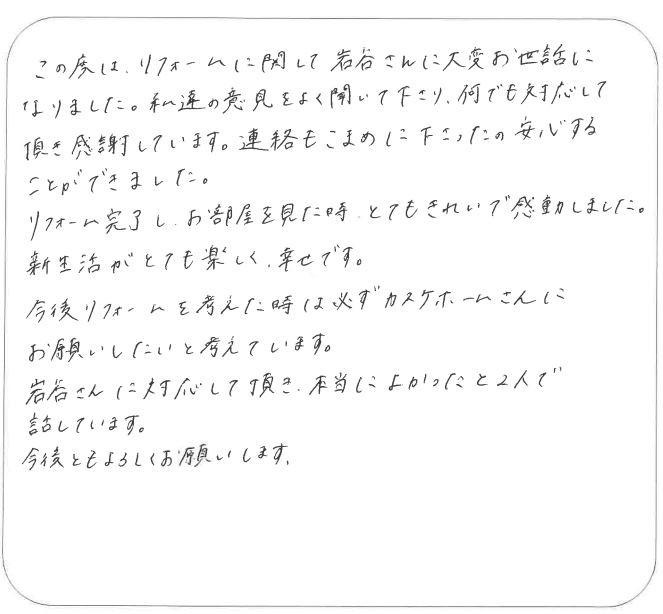 この度は、リフォームに関して岩谷さんに大変お世話に
なりました。私達の意見をよく聞いて下さり、何でも対応して
頂き感謝しています。連絡もこまめに下さったの安心する
ことができました。
リフォーム完了し、お部屋を見た時、とてもきれいで感動しました。
新生活がとても楽しく、幸せです。
今後リフォームを考えた時は必ずカスケホームさんに
お願いしたいと考えています。
岩谷さんに対応して頂き、本当によかったと2人で
話しています。
今後ともよろしくお願いします。